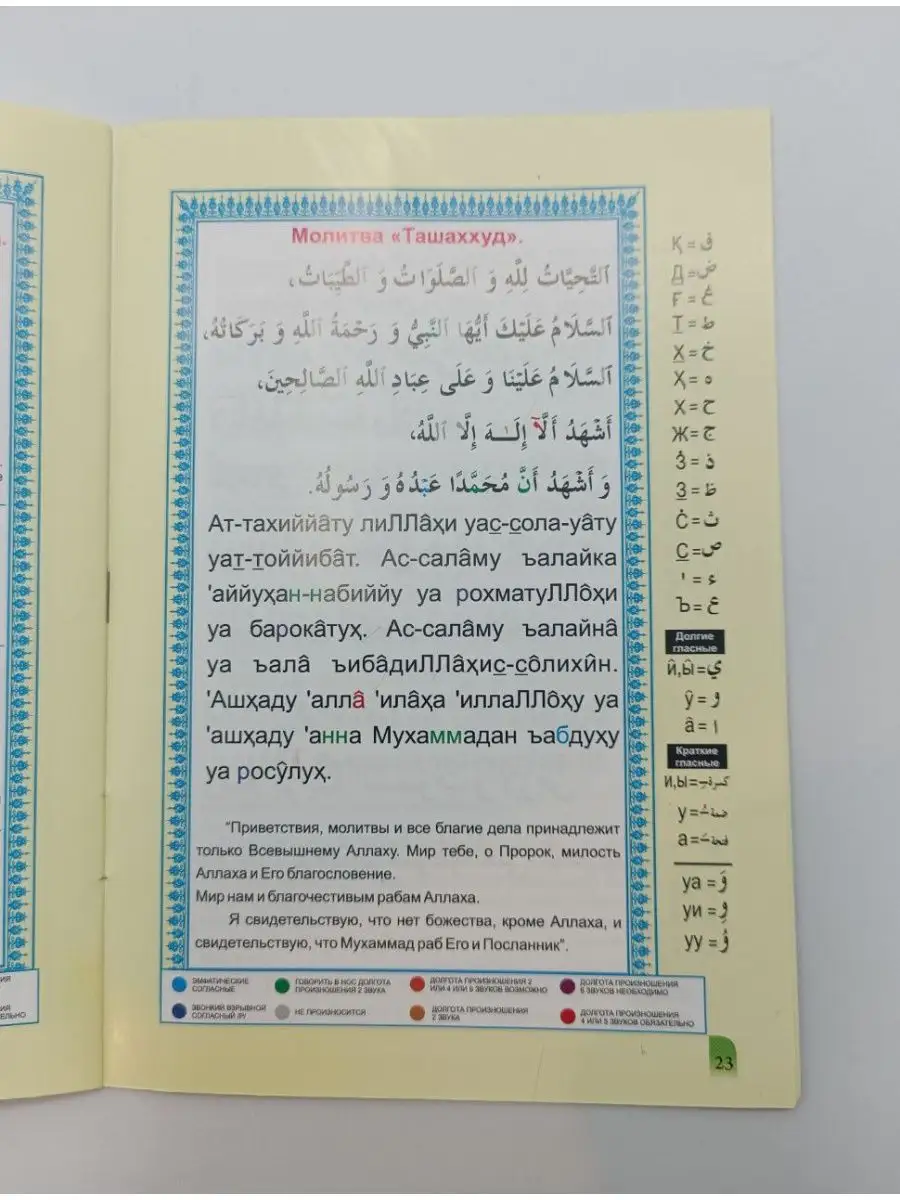 Молитва «Ташаххуд».
اَلتَّحِيَّاتُ لِلَّهِ وَ الصَّلَوَاتُ وَ الطَّيِّبَاتُ،
اَلسَّلَامُ عَلَيْكَ أَيُّهَا النَّبِيُّ وَ رَحْمَةُ اللَّهِ وَ بَرَكَاتُهُ،
اَلسَّلَامُ عَلَيْنَا وَ عَلَى عِبَادِ اللَّهِ الصَّالِحِينَ،
أَشْهَدُ أَلَّآ إِلَـٰهَ إِلَّا اللَّهُ،
وَ أَشْهَدُ أَنَّ مُحَمَّدًا عَبْدُهُ وَ رَسُولُهُ.
Ат-тахиййâту лиЛЛâҳи уас-сола-уâту
уат-тоййибâт. Ас-салâму ъалайка
'аййуҳан-набиййу уа рохматуЛЛôҳи
уа барокâтуҳ. Ас-салâму ъалайнâ
уа ъалâ ъибâдиЛЛâҳис-сôлихӣн.
'Ашҳаду 'аллâ 'илâҳа 'иллаЛЛôҳу уа
'ашҳаду 'анна Мухаммадан ъабдуҳу
уа росŷлуҳ.
"Приветствия, молитвы и все благие дела принадлежит
только Всевышнему Аллаху. Мир тебе, о Пророк, милость
Аллаха и Его благословение.
Мир нам и благочестивым рабам Аллаха.
Я свидетельствую, что нет божества, кроме Аллаха, и
свидетельствую, что Мухаммад раб Его и Посланник".
Қ = ق
Д = ض
Ғ = غ
Т = ط
Х = خ
Ҳ = ه
Х = ح
Ж = ج
З̇ = ذ
З = ظ
Ċ = ث
С = ص
' = ء
Ъ = ع
Долгие
гласные
й̂,ы̂ = ي
ŷ = و
â = ا
Краткие
гласные
и,ы = كسرة
у = ضمة
а = فتحة
уа = وَ
уи = وِ
уу = وُ
ЭМФАТИЧЕСКИЕ
СОГЛАСНЫЕ
ГОВОРИТЬ В НОС ДОЛГОТА
ПРОИЗНОШЕНИЯ 2 ЗВУКА
ДОЛГОТА ПРОИЗНОШЕНИЯ 2
ИЛИ 4 ИЛИ 6 ЗВУКОВ ВОЗМОЖНО
ДОЛГОТА ПРОИЗНОШЕНИЯ
6 ЗВУКОВ НЕОБХОДИМО
ЗВОНКИЙ ВЗРЫВНОЙ
СОГЛАСНЫЙ /Р/
НЕ ПРОИЗНОСИТСЯ
ДОЛГОТА ПРОИЗНОШЕНИЯ
2 ЗВУКА
ДОЛГОТА ПРОИЗНОШЕНИЯ
4 ИЛИ 5 ЗВУКОВ ОБЯЗАТЕЛЬНО
23